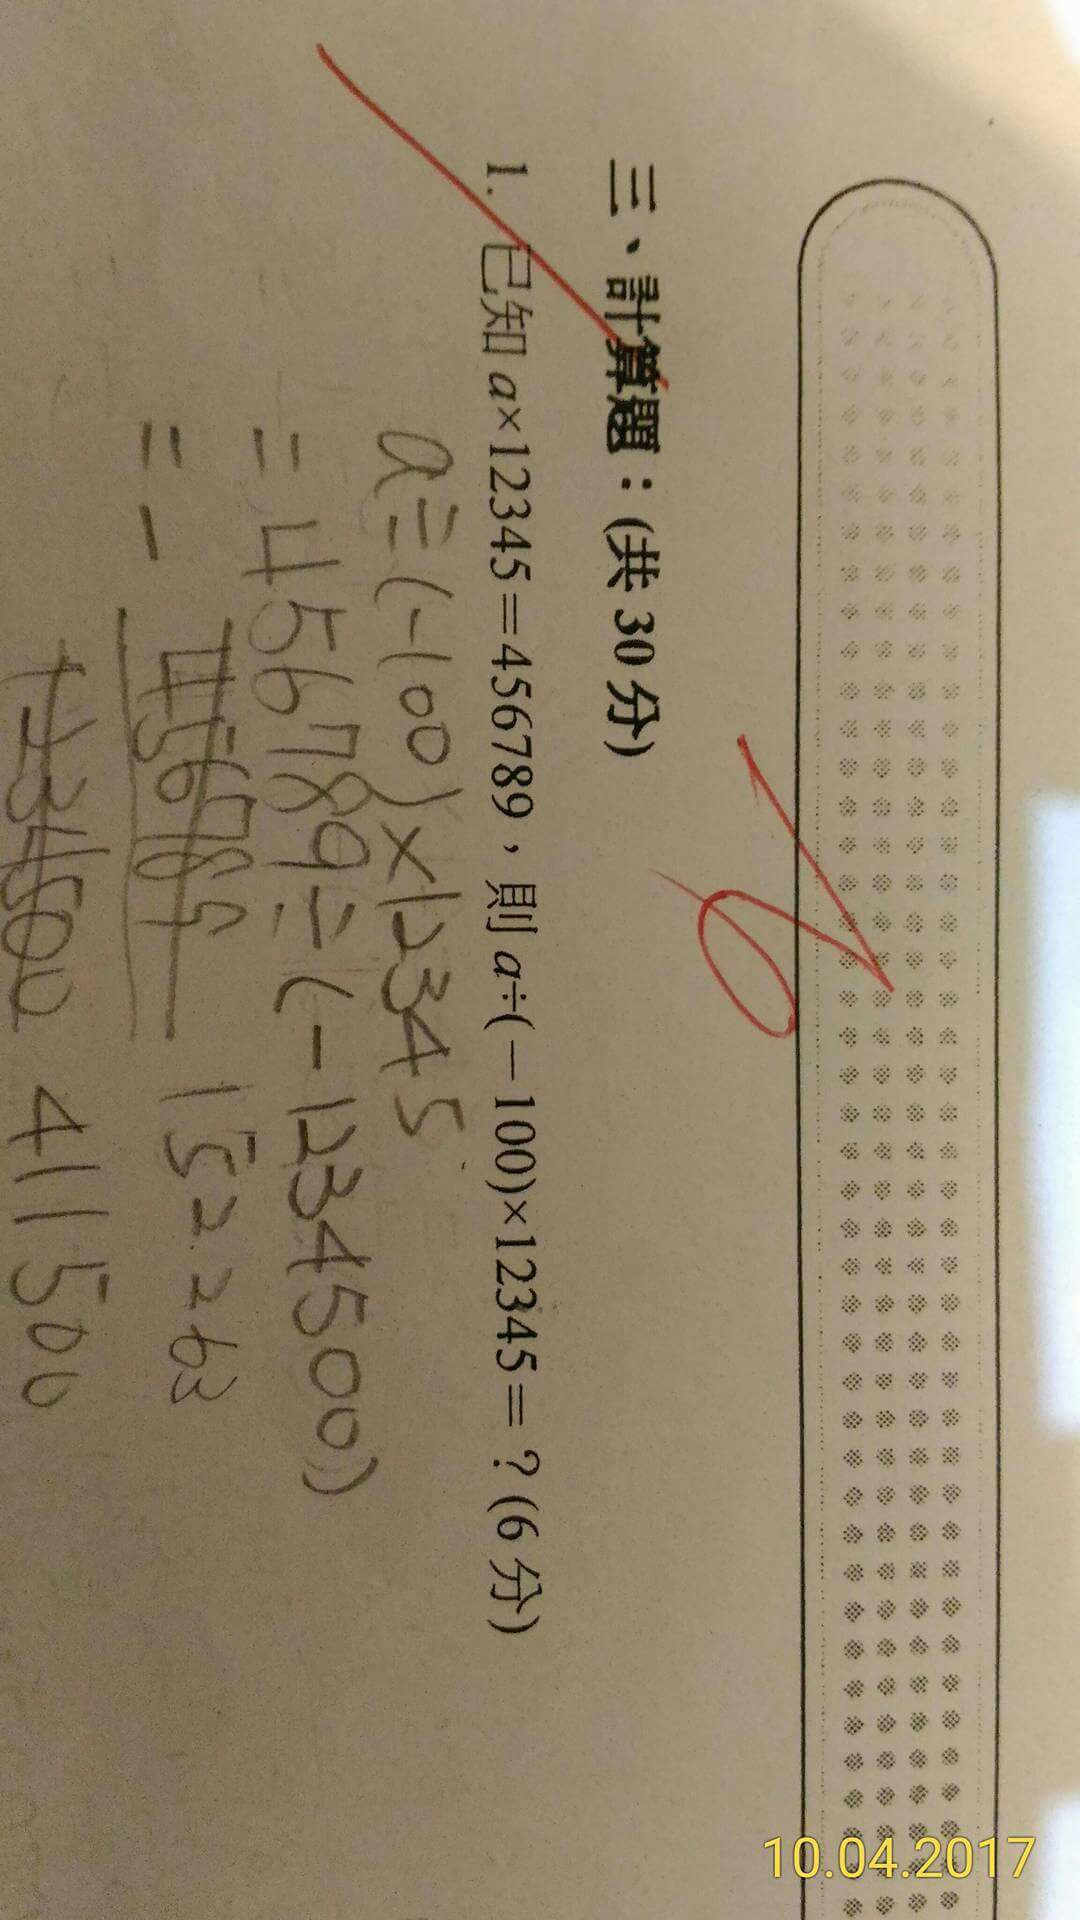 三、計算題：(共 30 分)
1. 已知 a×12345=456789，則 a÷(－100)×12345=？(6 分)
a÷(-100)×12345
=456789÷(-1234500)
=-
456789
1234500
152263
411500
10.04.2017